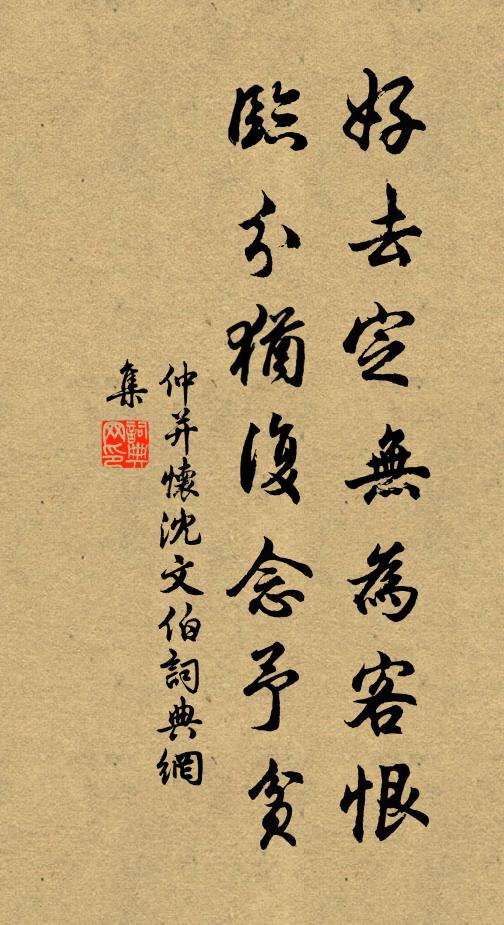 好去定無為客恨
臨分猶復念予貧
仲并懷沈文伯詞典網
集
詞典
网印